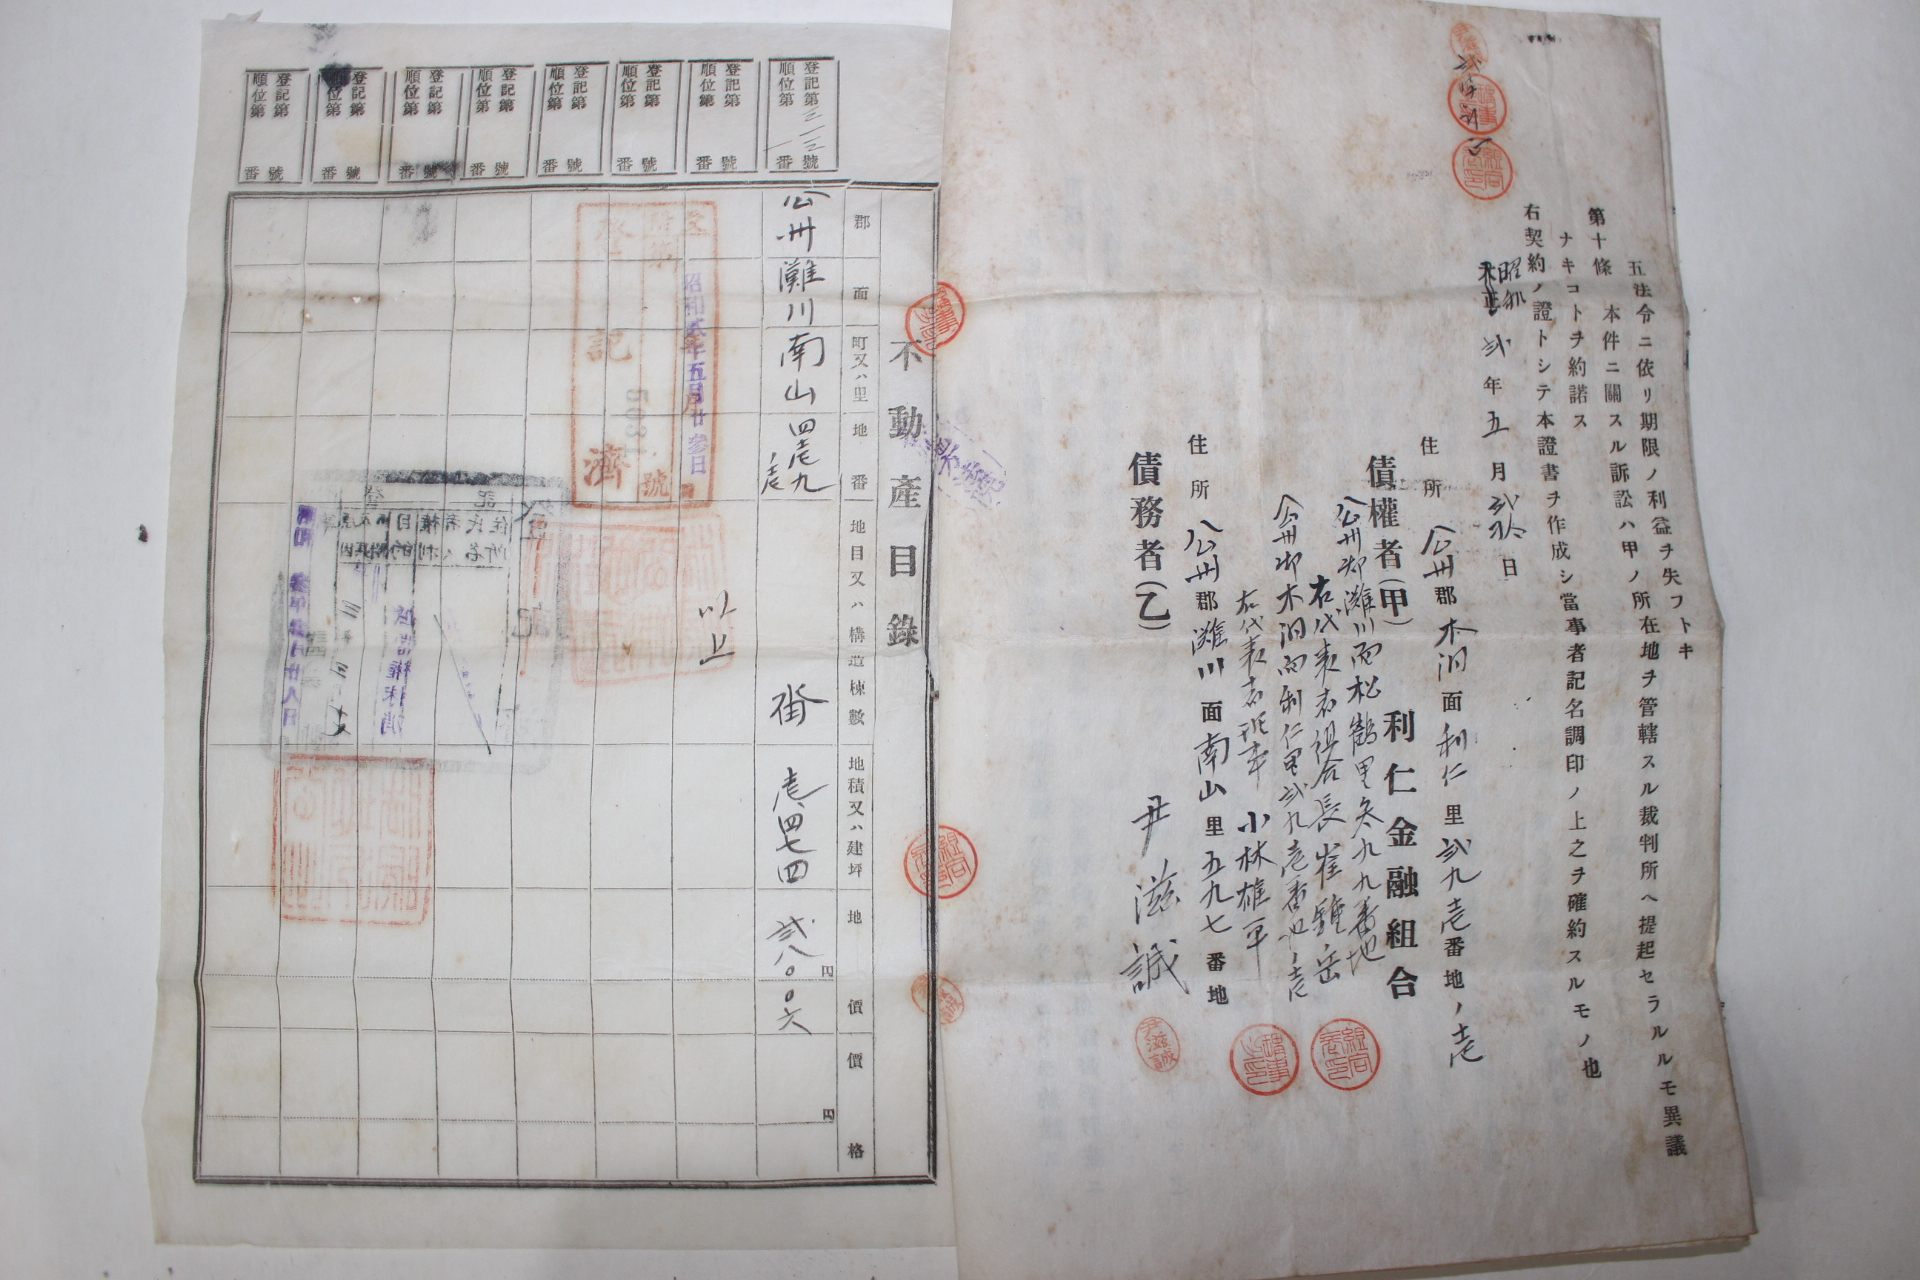 五法令ニ依リ期限ノ利益ヲ失フトキ
第十條　本件ニ關スル訴訟ハ甲ノ所在地ヲ管轄スル裁判所ヘ提起セラルルモ異議
ナキコトヲ約諾ス
右契約ノ證トシテ本證書ヲ作成シ當事者記名調印ノ上之ヲ確約スルモノ也
昭和
大正 弐年五月弐拾 日
住所 公州郡木洞面利仁里弐九壱番地ノ壱
債權者(甲) 利仁金融組合
公州郡灘川面松鶴里参九九番地
右代表者組合長 崔鍾岳
公州郡木洞面利仁里弐九壱番地ノ壱
右代表者理事 小林雄平
住所 公州郡灘川面南山里五九七番地
債務者(乙) 尹滋誠
不動產目錄
郡 面 町又ハ里 地番 地目又ハ構造棟數 地積又ハ建坪 地價 價格
円 円
公州 灘川 南山 四壱九ノ壱 畓 壱、四七四 弐八〇〇六
以上
登記第三一三號
順位第一番
登記第 號
順位第 番
登記第 號
順位第 番
登記第 號
順位第 番
登記第 號
順位第 番
登記第 號
順位第 番
登記第 號
順位第 番
登記第 號
順位第 番
昭和弐年五月廿參日
登記濟
號
尹滋誠